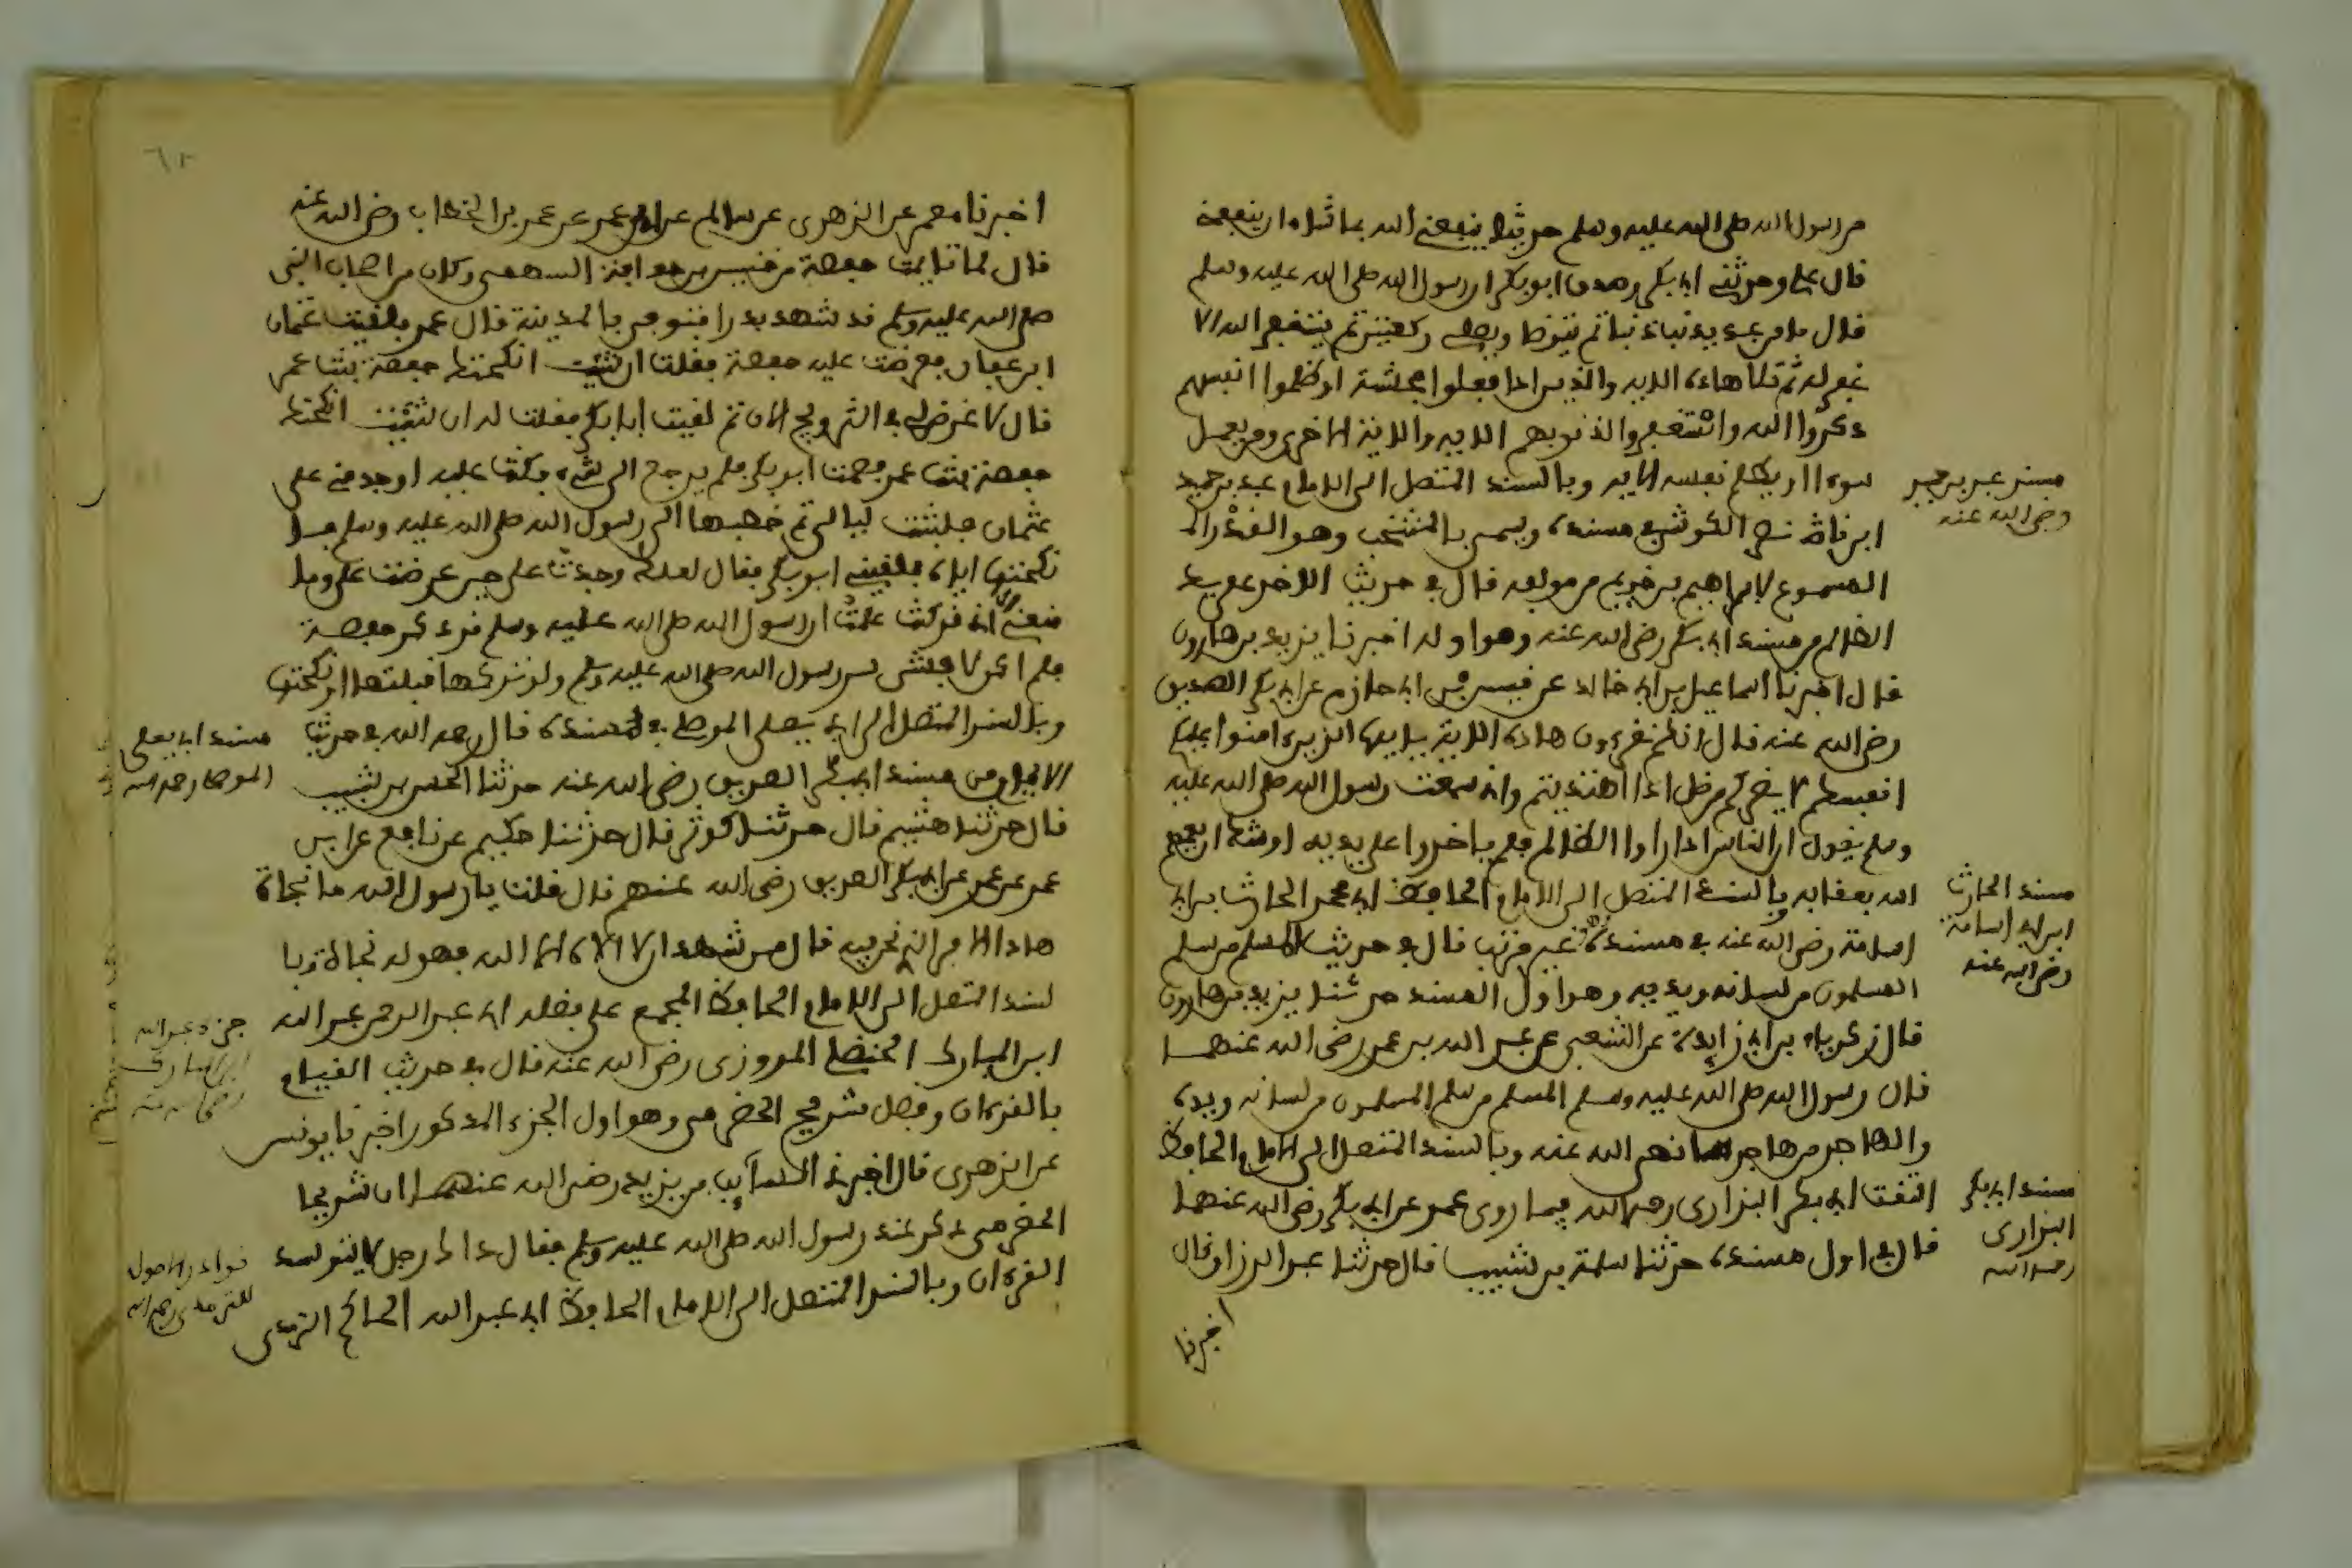 من رسول الله صلى الله عليه وسلم حديثا ينفعني الله بما شاء ان ينفعني
قال علي وحدثني ابو بكر وصدق ابو بكر ان رسول الله صلى الله عليه وسلم
قال ما من عبد يذنب ذنبا ثم يتوضا ويصلي ركعتين ثم يستغفر الله الا
غفر له ثم تلا هاذه الايه والذين اذا فعلوا فحشة او ظلموا انفسهم
ذكروا الله واستغفروا لذنوبهم الايه والاية الاخرى ومن يعمل
سوءا او يظلم نفسه الايه وبالسند المتصل الى الامام عبد بن حميد
مسند عبد بن حميد
رضى الله عنه
ابن نصر الكوشي في مسنده ويسمى بالمنتخب وهو القدر الـ
المسموع لابراهيم بن خزيم من مولفه قال في حديث الاخذ على يد
الظالم من مسند ابي بكر رضى الله عنه وهو اوله اخبرنا يزيد بن هارون
قال اخبرنا اسماعيل بن ابي خالد عن قيس بن ابي حازم عن ابي بكر الصديق
رضى الله عنه قال انكم تقرءون هاذه الاية يا ايها الذين ءامنوا عليكم
انفسكم لا يضركم من ضل اذا اهتديتم واني سمعت رسول الله صلى الله عليه
وسلم يقول ان الناس اذا راوا الظالم فلم ياخذوا على يديه اوشك ان يعمهم
الله بعقابه وبالسند المتصل الى الامام الحافظ ابي محمد الحارث بن ابي
مسند الحارث
ابن ابي اسامة
رضى الله عنه
اسامة رضى الله عنه في مسنده غير مرتب قال في حديث المسلم من سلم
المسلمون من لسانه ويديه وهو اول المسند حدثنا يزيد بن هارون
قال زكرياء بن ابي زايدة عن الشعبي عن عبد الله بن عمر رضى الله عنهما
قال رسول الله صلى الله عليه وسلم المسلم من سلم المسلمون من لسانه ويده
والمهاجر من هاجر ما نهى الله عنه وبالسند المتصل الى الامام الحافظ
الثقت ابي بكر البزارى رحمه الله فيما روى عمر عن ابي بكر رضى الله عنهما
مسند ابي بكر
البزارى
رحمه الله
قال في اول مسنده حدثنا سلمة بن شبيب قال حدثنا عبد الرزاق قال
اخبرنا
اخبرنا معمر عن الزهرى عن سالم عن ابن عمر عن عمر بن الخطاب رضى الله عنه
قال لما تايمت حفصة من خنيس بن حذافة السهمى وكان من اصحاب النبى
صلى الله عليه وسلم قد شهد بدرا فتوفى بالمدينة قال عمر فلقيت عثمان
ابن عفان فعرضت عليه حفصة فقلت ان شئت انكحتك حفصة بنت عمر
قال لا غرض لي في التزويج الان ثم لقيت ابا بكر فقلت له ان شئت انكحتك
حفصة بنت عمر فصمت ابو بكر فلم يرجع الى شيء فكنت عليه اوجد مني على
عثمان فلبثت ليالي ثم خطبها الى رسول الله صلى الله عليه وسلم
نكحتها اياه فلقيني ابو بكر فقال لعلك وجدت على حين عرضت على وما
منعني اني قد كنت علمت ان رسول الله صلى الله عليه وسلم قد ذكر حفصة
فلم اكن لافشى سر رسول الله صلى الله عليه وسلم ولو تركها قبلتها او نكحتها
وبالسند المتصل الى ابي يعلى الموصلي في مسنده قال رحمه الله في حديث
مسند ابي يعلى
الموصلي رحمه الله
الاول من مسند ابي بكر الصديق رضى الله عنه حدثنا الحسن بن شبيب
قال حدثنا هشيم قال حدثنا كوثر قال حدثنا حكيم عن نافع عن ابن
عمر عن عمر عن ابي بكر الصديق رضى الله عنهم قال قلت يا رسول الله ما نجاة
هاذا الامر الذى نحن فيه قال من شهد ان لا الاه الا الله فهو له نجاة وبا
لسند المتصل الى الامام الحافظ المجمع على فضله ابي عبد الرحمن عبد الله
جزء عبد الله
ابن المبارك
رضى الله عنه
ابن المبارك الحنظلي المروزى رضى الله عنه قال في حديث القيام
بالقرءان وفضل شريح الحضرمى وهو اول الجزء المذكور اخبرنا يونس
عن الزهرى قال اخبرنى السآيب بن يزيد رضى الله عنهما ان شريحا
الحضرمى ذكر عند رسول الله صلى الله عليه وسلم فقال ذاك رجل لا يتوسد
نوادر الاصول
للترمذى رحمه الله
القرءان وبالسند المتصل الى الامام الحافظ ابي عبد الله الحاكم الترمذى